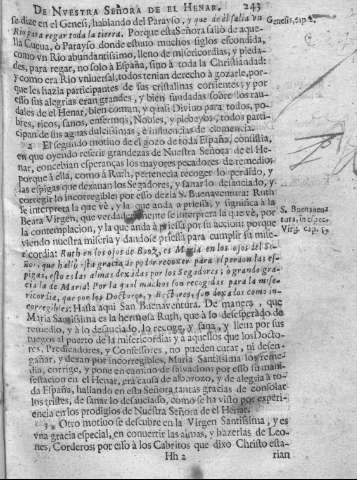 DE NVESTRA SEÑORA DE EL HENAR. 243
se dize en el Genesi, hablando del Parayso, y que de èl salia vn Genesis, cap. 2.
Rio para regar toda la tierra. Porque esta Señora salió de aque-
lla Cueua, ò Parayso donde estuuo muchos siglos escondida,
como vn Rio abundantissimo, lleno de misericordias, y pieda-
des, para regar, no solo à España, sino à toda la Christiandad:
y como era Rio vniuersal, todos tenian derecho à gozarle, por-
que les hazia participantes de sus cristalinas corrientes, y por
esso sus alegrias eran grandes, y bien fundadas sobre los rau-
dales de el Henar, bien comun, y oasis Divino para todos, po-
bres, ricos, sanos, enfermos, Nobles, y plebeyos, todos parti-
cipan de sus aguas dulcissimas, è influencias de clemencia.
2 El segundo motivo de el gozo de toda España, consistia,
en que oyendo referir grandezas de Nuestra Señora de el He-
nar, concebian esperanças los mayores pecadores de remedio;
porque à ella, como à Ruth, pertenecia recoger lo perdido, y
las espigas que dexauan los Segadores, y sanar lo deiunciado, y
corregir lo incorregible por esso dezia S. Buenaventura: Ruth
se interpreta la que vè, y la que anda à priessa, y significa à la
Beata Virgen, que verdaderamente se interpreta la que vè, por S. Buenauen
la contemplacion, y la que anda à priessa por su accion; porque tura, in spec.
viendo nuestra miseria y dandose priessa para cumplir su mise- Virg. cap. 5.
ricordia: Ruth en los ojos de Booz, es Maria en los ojos del Se-
ñor, que hallò esta gracia de poder recoger para el perdon las es-
pigas, esto es las almas dexadas por los Segadores; ò grande gra-
cia la de Maria! Por la qual muchos son recogidos para la mise-
ricordia, que por los Doctores, y Rectores, son dexados como in-
corregibles: Hasta aqui San Buenaventura. De manera, que
Maria Santissima es la hermosa Ruth, que à lo desesperado de
remedio, y à lo desauciado, lo recoge, y sana, y lleua por sus
ruegos al puerto de la misericordia y à aquellos que los Docto-
res, Predicadores, y Confessores, no pueden curar, ni desen-
gañar, y dexan por incorregibles, Maria Santissima los reme-
dia, corrige, y pone en camino de salvacion: por esso su mani-
festacion en el Henar, era causa de alborozo, y de alegria à to-
da España, hallando en esta Señora, tantas gracias de consolar
los tristes, de sanar lo desauciado, como se hà visto por experi-
encia en los prodigios de Nuestra Señora de el Henar.
3 Otro motiuo se descubre en la Virgen Santissima, y es
vna gracia especial, en conuertir las almas, y hazerlas de Leo-
nes, Corderos por esso à los Cabritos que dixo Christo esta-
Hh 2 rian